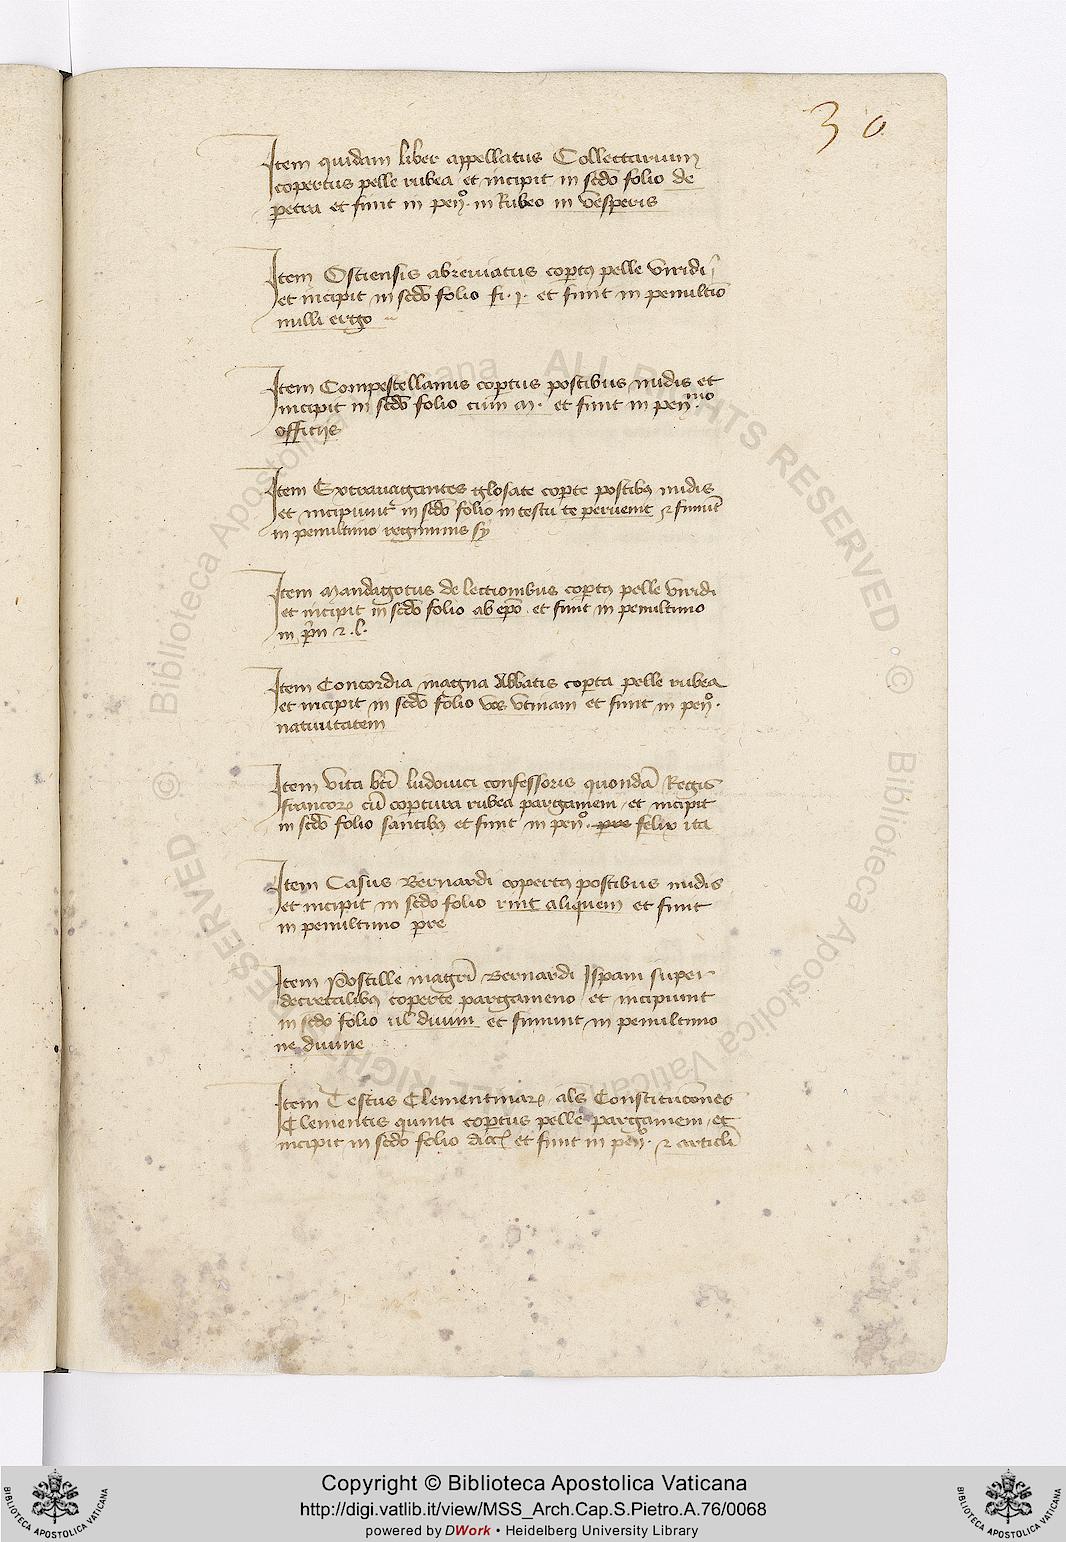 30
Item quidam liber appellatus Collectarium
copertus pelle rubea et incipit in scdo folio de
petra et finit in peno. in Rubeo in vesperis
Item Ostiensis abreviatus copertus pelle viridi
et incipit in scdo folio fi. j. et finit in penultio
nulli ergo
Item Compostellanus copertus postibus nudis et
incipit in scdo folio cum m. et finit in penmo
officijs
Item Extravagantes glosate coperte postibus nudis
et incipiunt in scdo folio in testu te pervenit et finiunt
in penultimo regiminis sy
Item Mandagotus de lectionibus copertus pelle viridi
et incipit in scdo folio ab epo et finit in penultimo
in prin et .l.
Item Concordia magna Abbatis coperta pelle rubea
et incipit in scdo folio vos utinam et finit in peno.
nativitatem
Item vita bti ludovici confessoris quonda Regis
francor cu copertura rubea pargameni et incipit
in scdo folio santibus et finit in peno. pre felix ita
Item Casus Bernardi copertus postibus nudis
et incipit in scdo folio rint aliquem et finit
in penultimo pre
Item Postille magri Bernardi Ispani super
decretalibus coperte pargameno et incipiunt
in scdo folio ul divin et finiunt in penultimo
ne divine
Item Testus Clementinar als Constitucones
Clementis quinti copertus pelle pargameni et
incipit in scdo folio et finit in peno. et articli
Biblioteca Apostolica Vaticana ALL RIGHTS RESERVED © Biblioteca Apostolica Vaticana ALL RIGHTS RESERVED ©
BIBLIOTECA APOSTOLICA VATICANA
Copyright © Biblioteca Apostolica Vaticana
http://digi.vatlib.it/view/MSS_Arch.Cap.S.Pietro.A.76/0068
powered by DWork • Heidelberg University Library
BIBLIOTECA APOSTOLICA VATICANA